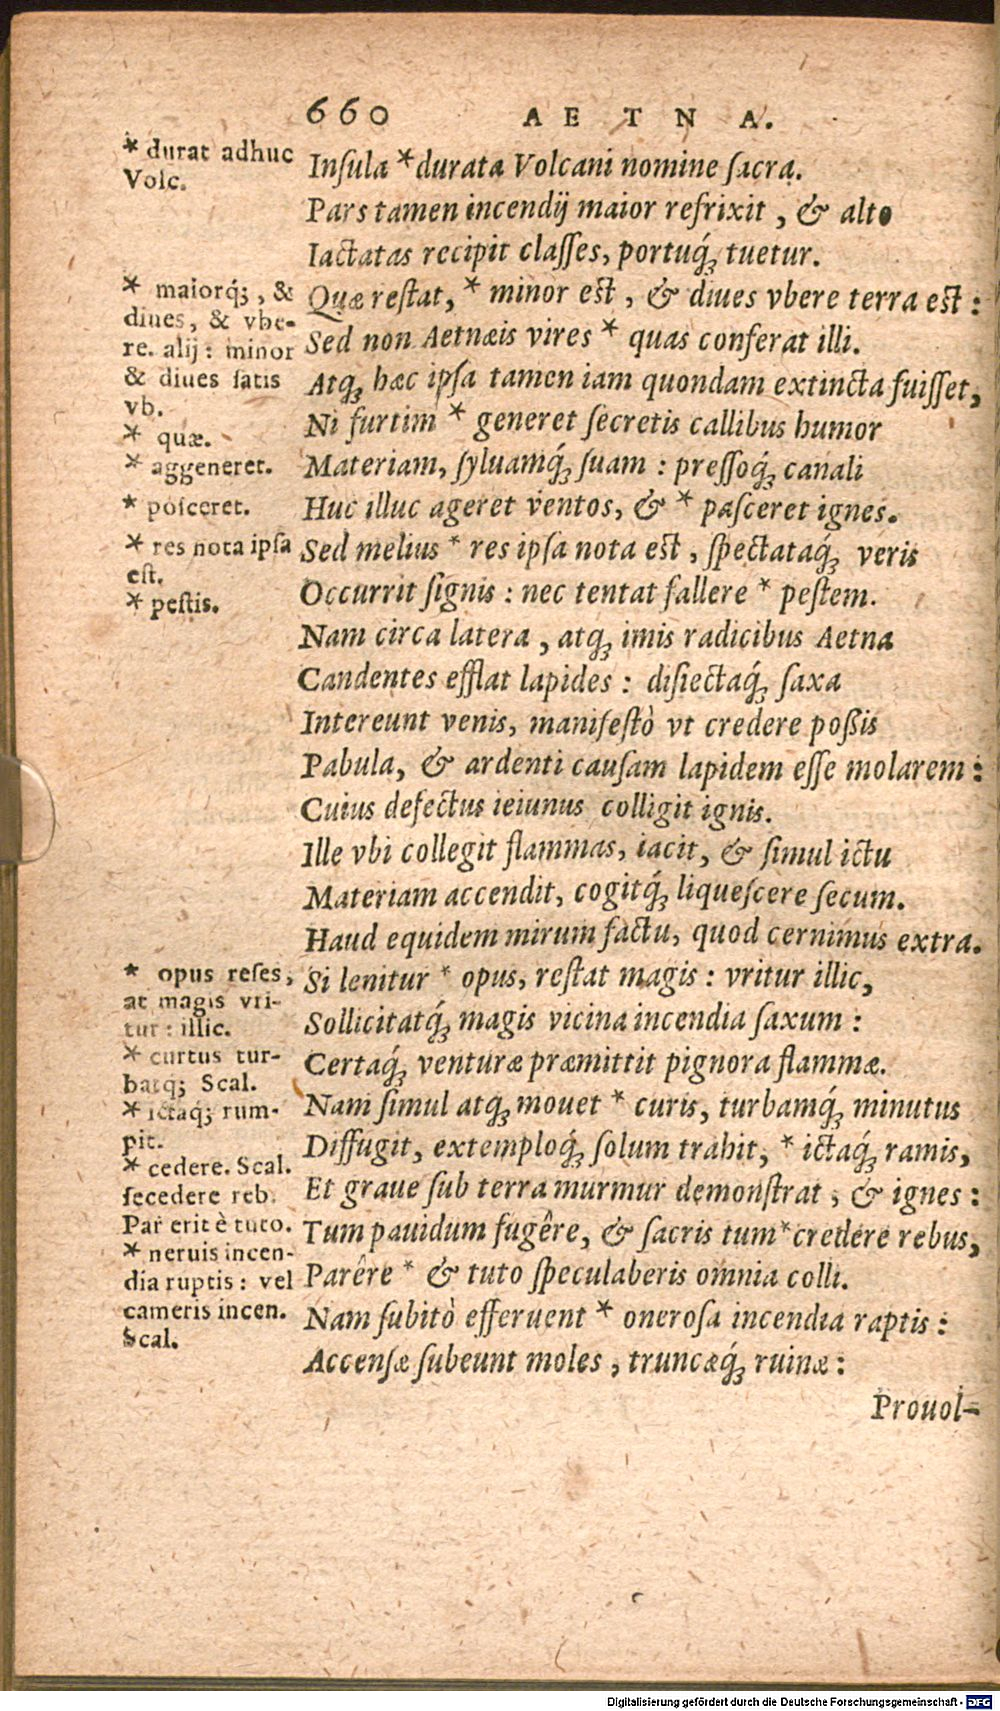 660 AETNA.
* durat adhuc
Volc.
Insula *durata Volcani nomine sacra.
Pars tamen incendij maior refrixit, & alto
Iactatas recipit classes, portuq́ꝫ tuetur.
* maiorq́ꝫ, &
diues, & vbe-
re. alij: minor
& diues satis
vb.
Quæ restat, * minor est, & diues vbere terra est:
Sed non Aetnæis vires * quas conferat illi.
Atqꝫ hæc ipsa tamen iam quondam extincta fuisset,
* quæ.
Ni furtim * generet secretis callibus humor
* aggeneret.
Materiam, syluamq́ꝫ suam: pressoq́ꝫ canali
* posceret.
Huc illuc ageret ventos, & * pasceret ignes.
* res nota ipsa
est.
Sed melius * res ipsa nota est, spectataq́ꝫ veris
* pestis.
Occurrit signis: nec tentat fallere * pestem.
Nam circa latera, atqꝫ imis radicibus Aetna
Candentes efflat lapides: disiectaq́ꝫ saxa
Intereunt venis, manifestò vt credere poßis
Pabula, & ardenti causam lapidem esse molarem:
Cuius defectus ieiunus colligit ignis.
Ille vbi collegit flammas, iacit, & simul ictu
Materiam accendit, cogitq́ꝫ liquescere secum.
Haud equidem mirum factu, quod cernimus extra.
* opus reses,
at magis vri-
tur: illic.
Si lenitur * opus, restat magis: vritur illic,
Sollicitatq́ꝫ magis vicina incendia saxum:
* curtus tur-
batqꝫ Scal.
Certaq́ꝫ venturæ præmittit pignora flammæ.
* ictaqꝫ rum-
pit.
Nam simul atqꝫ mouet * curis, turbamq́ꝫ minutus
Diffugit, extemploq́ꝫ solum trahit, * ictaq́ꝫ ramis,
* cedere. Scal.
secedere reb.
Par erit è tuto.
Et graue sub terra murmur demonstrat, & ignes:
Tum pauidum fugêre, & sacris tum *credere rebus,
* neruis incen-
dia ruptis: vel
cameris incen.
Scal.
Parêre * & tuto speculaberis omnia colli.
Nam subitò efferuent * onerosa incendia raptis:
Accensæ subeunt moles, truncæq́ꝫ ruinæ:
Prouol-
Digitalisierung gefördert durch die Deutsche Forschungsgemeinschaft - DFG